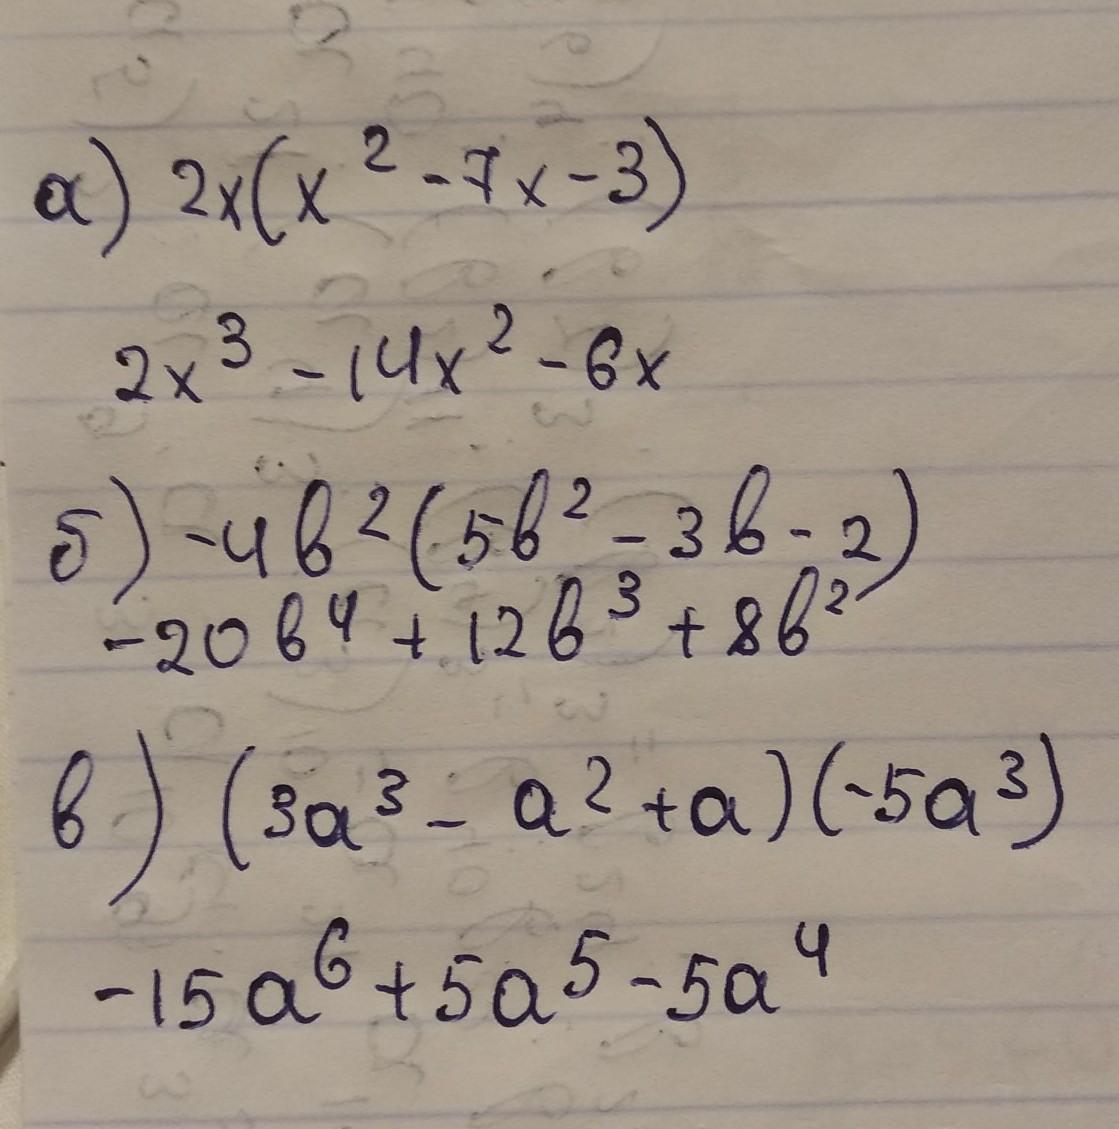 а) 2x(x² - 7x - 3)
2x³ - 14x² - 6x
б) -4b²(5b² - 3b - 2)
-20b⁴ + 12b³ + 8b²
в) (3a³ - a² + a)(-5a³)
-15a⁶ + 5a⁵ - 5a⁴